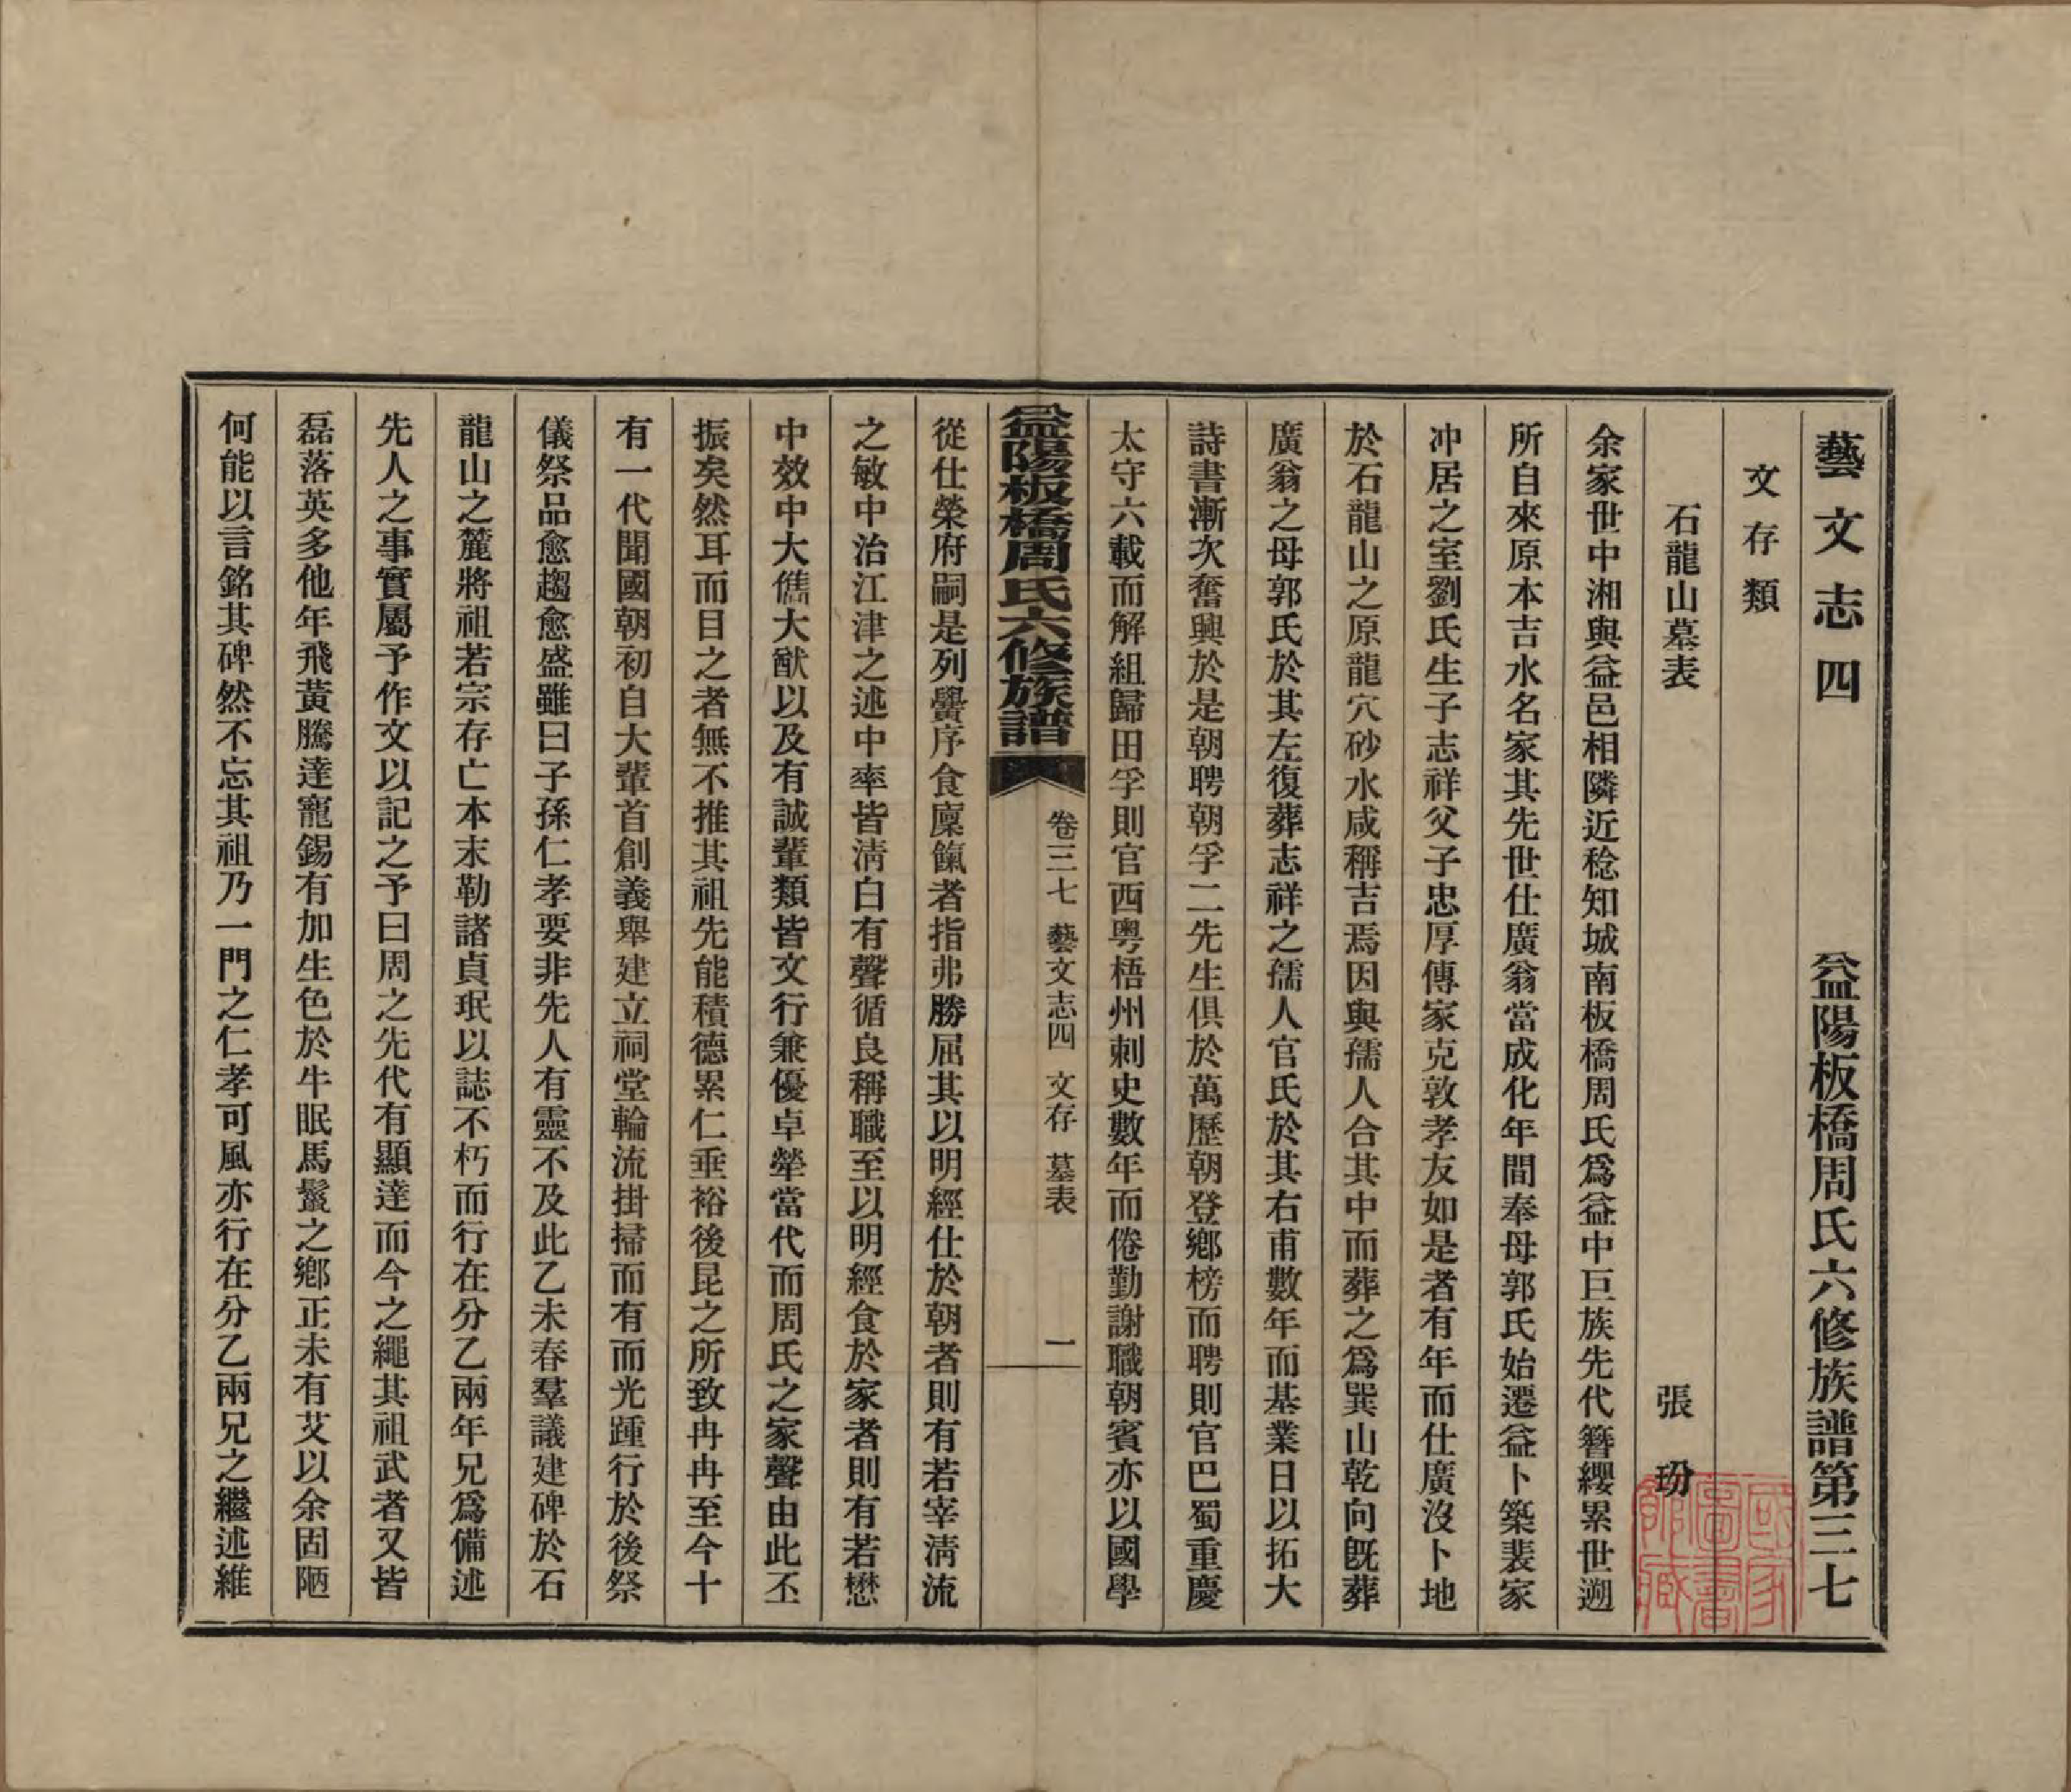 藝文志四　益陽板橋周氏六修族譜第三七
文存類
石龍山墓表　張玢
余家世中湘與益邑相隣近稔知城南板橋周氏爲益中巨族先代簪纓累世遡
所自來原本吉水名家其先世仕廣翁當成化年間奉母郭氏始遷益卜築裴家
冲居之室劉氏生子志祥父子忠厚傳家克敦孝友如是者有年而仕廣沒卜地
於石龍山之原龍穴砂水咸稱吉焉因與孺人合其中而葬之爲巽山乾向旣葬
廣翁之母郭氏於其左復葬志祥之孺人官氏於其右甫數年而基業日以拓大
詩書漸次奮興於是朝聘朝孚二先生俱於萬歷朝登鄕榜而聘則官巴蜀重慶
太守六載而解組歸田孚則官西粵梧州刺史數年而倦勤謝職朝賓亦以國學
益陽板橋周氏六修族譜　卷三七　藝文志四　文存　墓表　一
從仕榮府嗣是列黌序食廩餼者指弗勝屈其以明經仕於朝者則有若宰淸流
之敏中治江津之述中率皆淸白有聲循良稱職至以明經食於家者則有若懋
中效中大儁大猷以及有誠輩類皆文行兼優卓犖當代而周氏之家聲由此丕
振矣然耳而目之者無不推其祖先能積德累仁垂裕後昆之所致冉冉至今十
有一代聞國朝初自大輩首創義舉建立祠堂輪流掛掃而有而光踵行於後祭
儀祭品愈趨愈盛雖曰子孫仁孝要非先人有靈不及此乙未春羣議建碑於石
龍山之麓將祖若宗存亡本末勒諸貞珉以誌不朽而行在分乙兩年兄爲備述
先人之事實屬予作文以記之予曰周之先代有顯達而今之繩其祖武者又皆
磊落英多他年飛黃騰達寵錫有加生色於牛眠馬鬛之鄕正未有艾以余固陋
何能以言銘其碑然不忘其祖乃一門之仁孝可風亦行在分乙兩兄之繼述維
國家圖書館藏